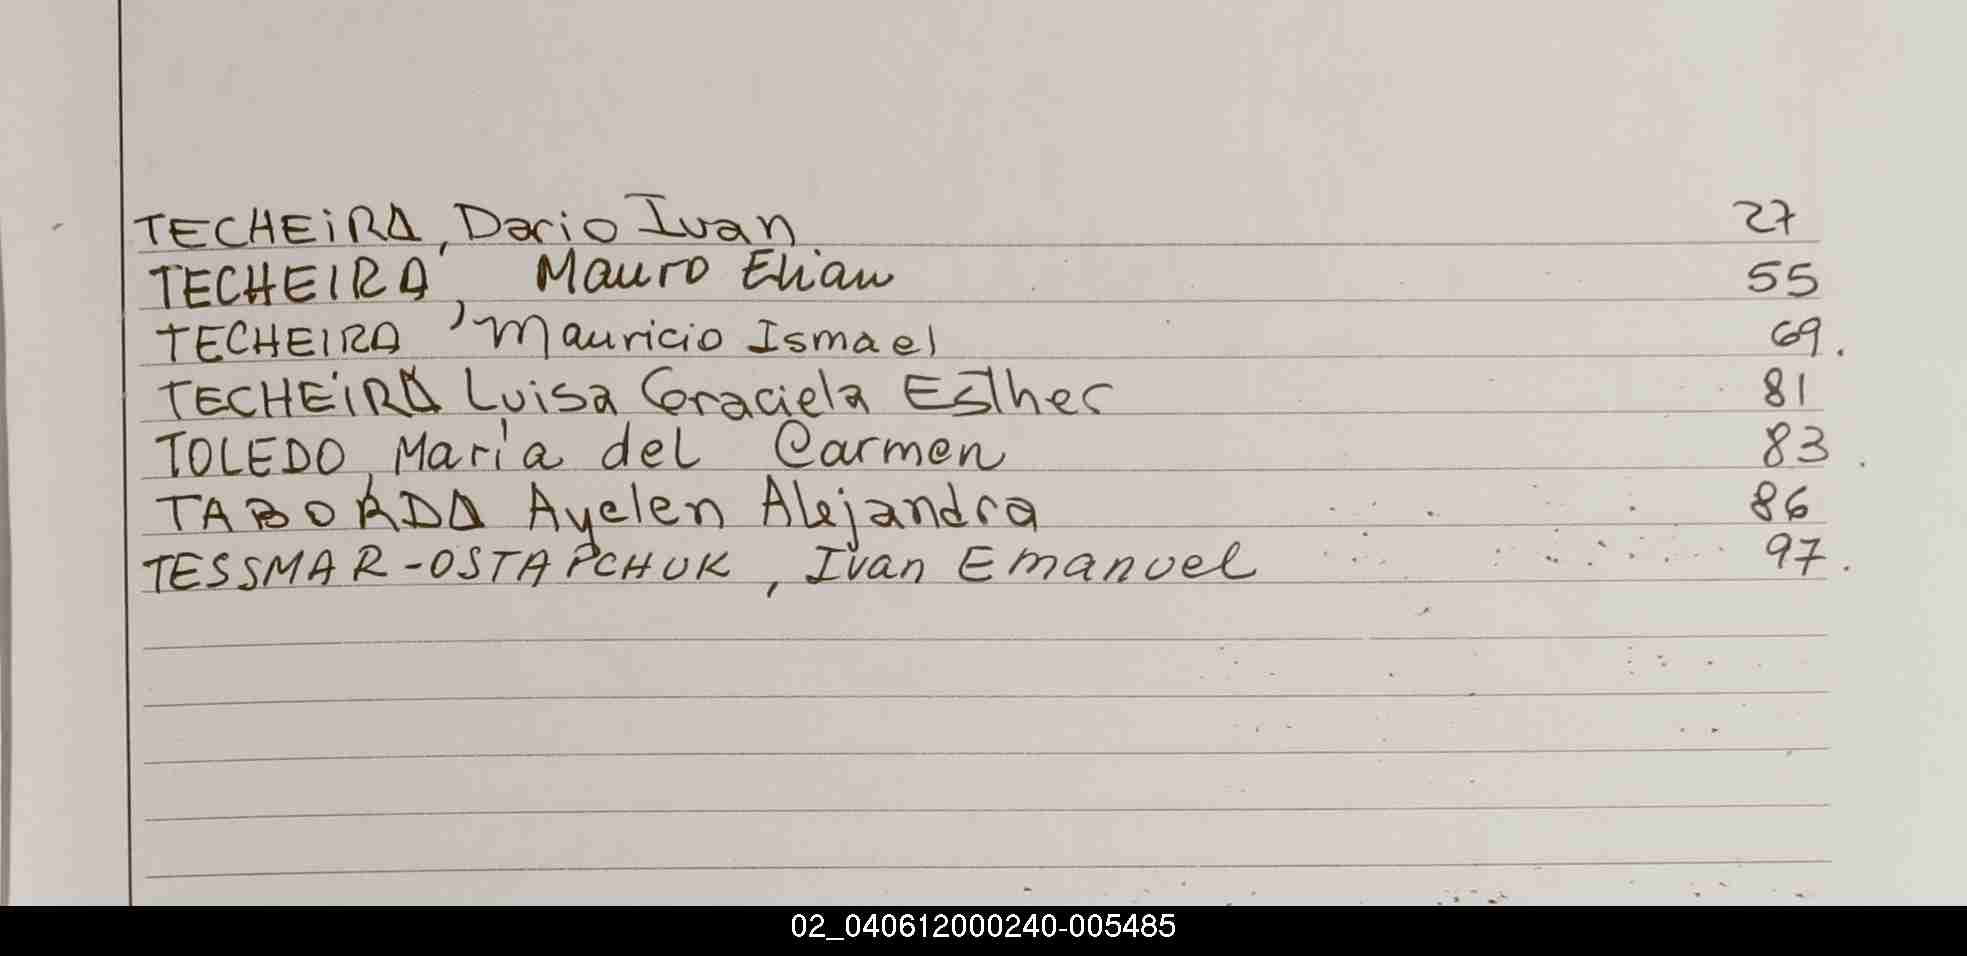 TECHEiRA, Dario Ivan 27
TECHEIRA, Mauro Elian 55
TECHEIRA, Mauricio Ismael 69.
TECHEiRA Luisa Graciela Esther 81
TOLEDO, María del Carmen 83.
TABORDA Ayelen Alejandra 86
TESSMAR-OSTAPCHUK, Ivan Emanuel 97.
02_040612000240-005485